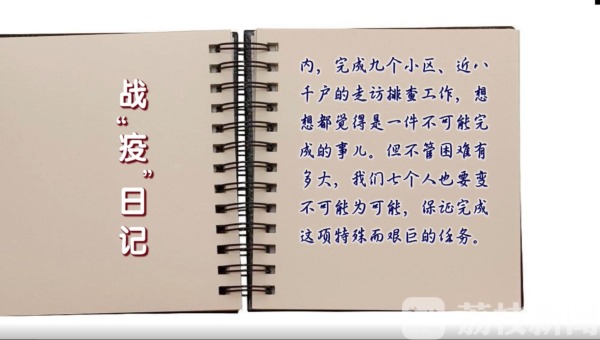 战“疫”日记
内，完成九个小区、近八
千户的走访排查工作，想
想都觉得是一件不可能完
成的事儿。但不管困难有
多大，我们七个人也要变
不可能为可能，保证完成
这项特殊而艰巨的任务。
荔枝新闻